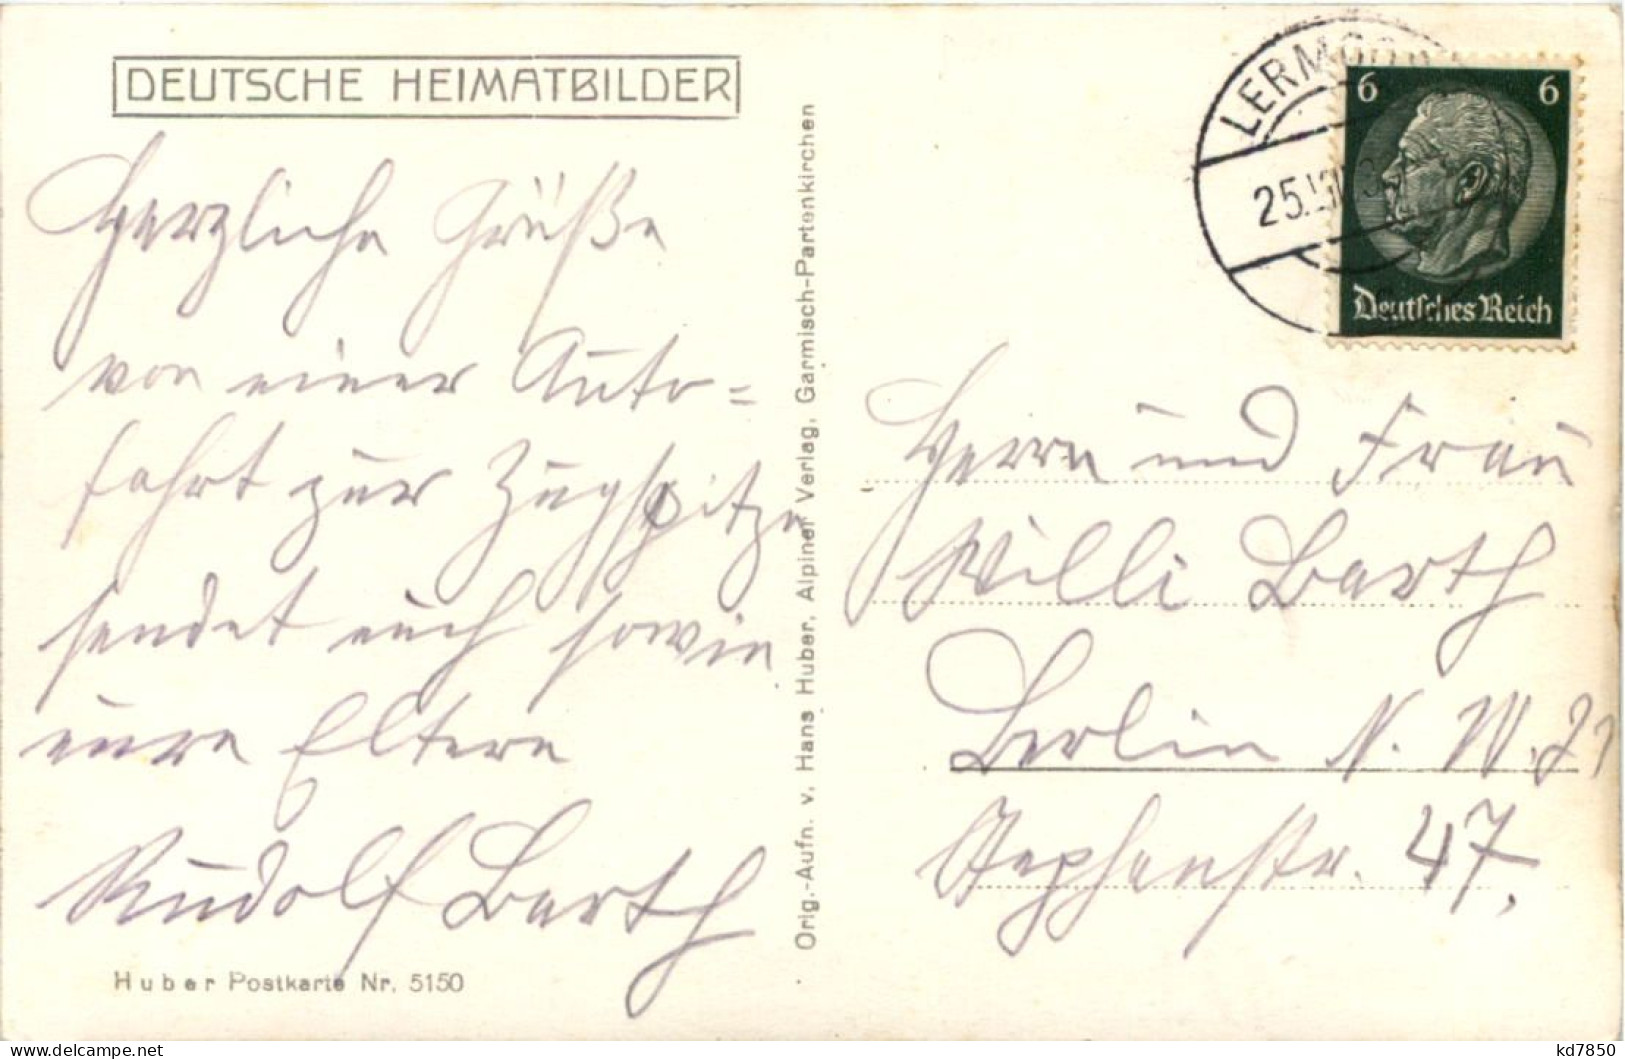 DEUTSCHE HEIMATBILDER
Herzliche Grüße
von einer Auto=
fahrt zur Zugspitze
sendet euch sowie
eure Eltern
Rudolf Barth
Huber Postkarte Nr. 5150
Orig.-Aufn. v. Hans Huber, Alpiner Verlag, Garmisch-Partenkirchen
LERMOOS
25.
6 6
Deutsches Reich
Herrn und Frau
Willi Barth
Berlin N. W. 21
Stephanstr. 47.
kd7850